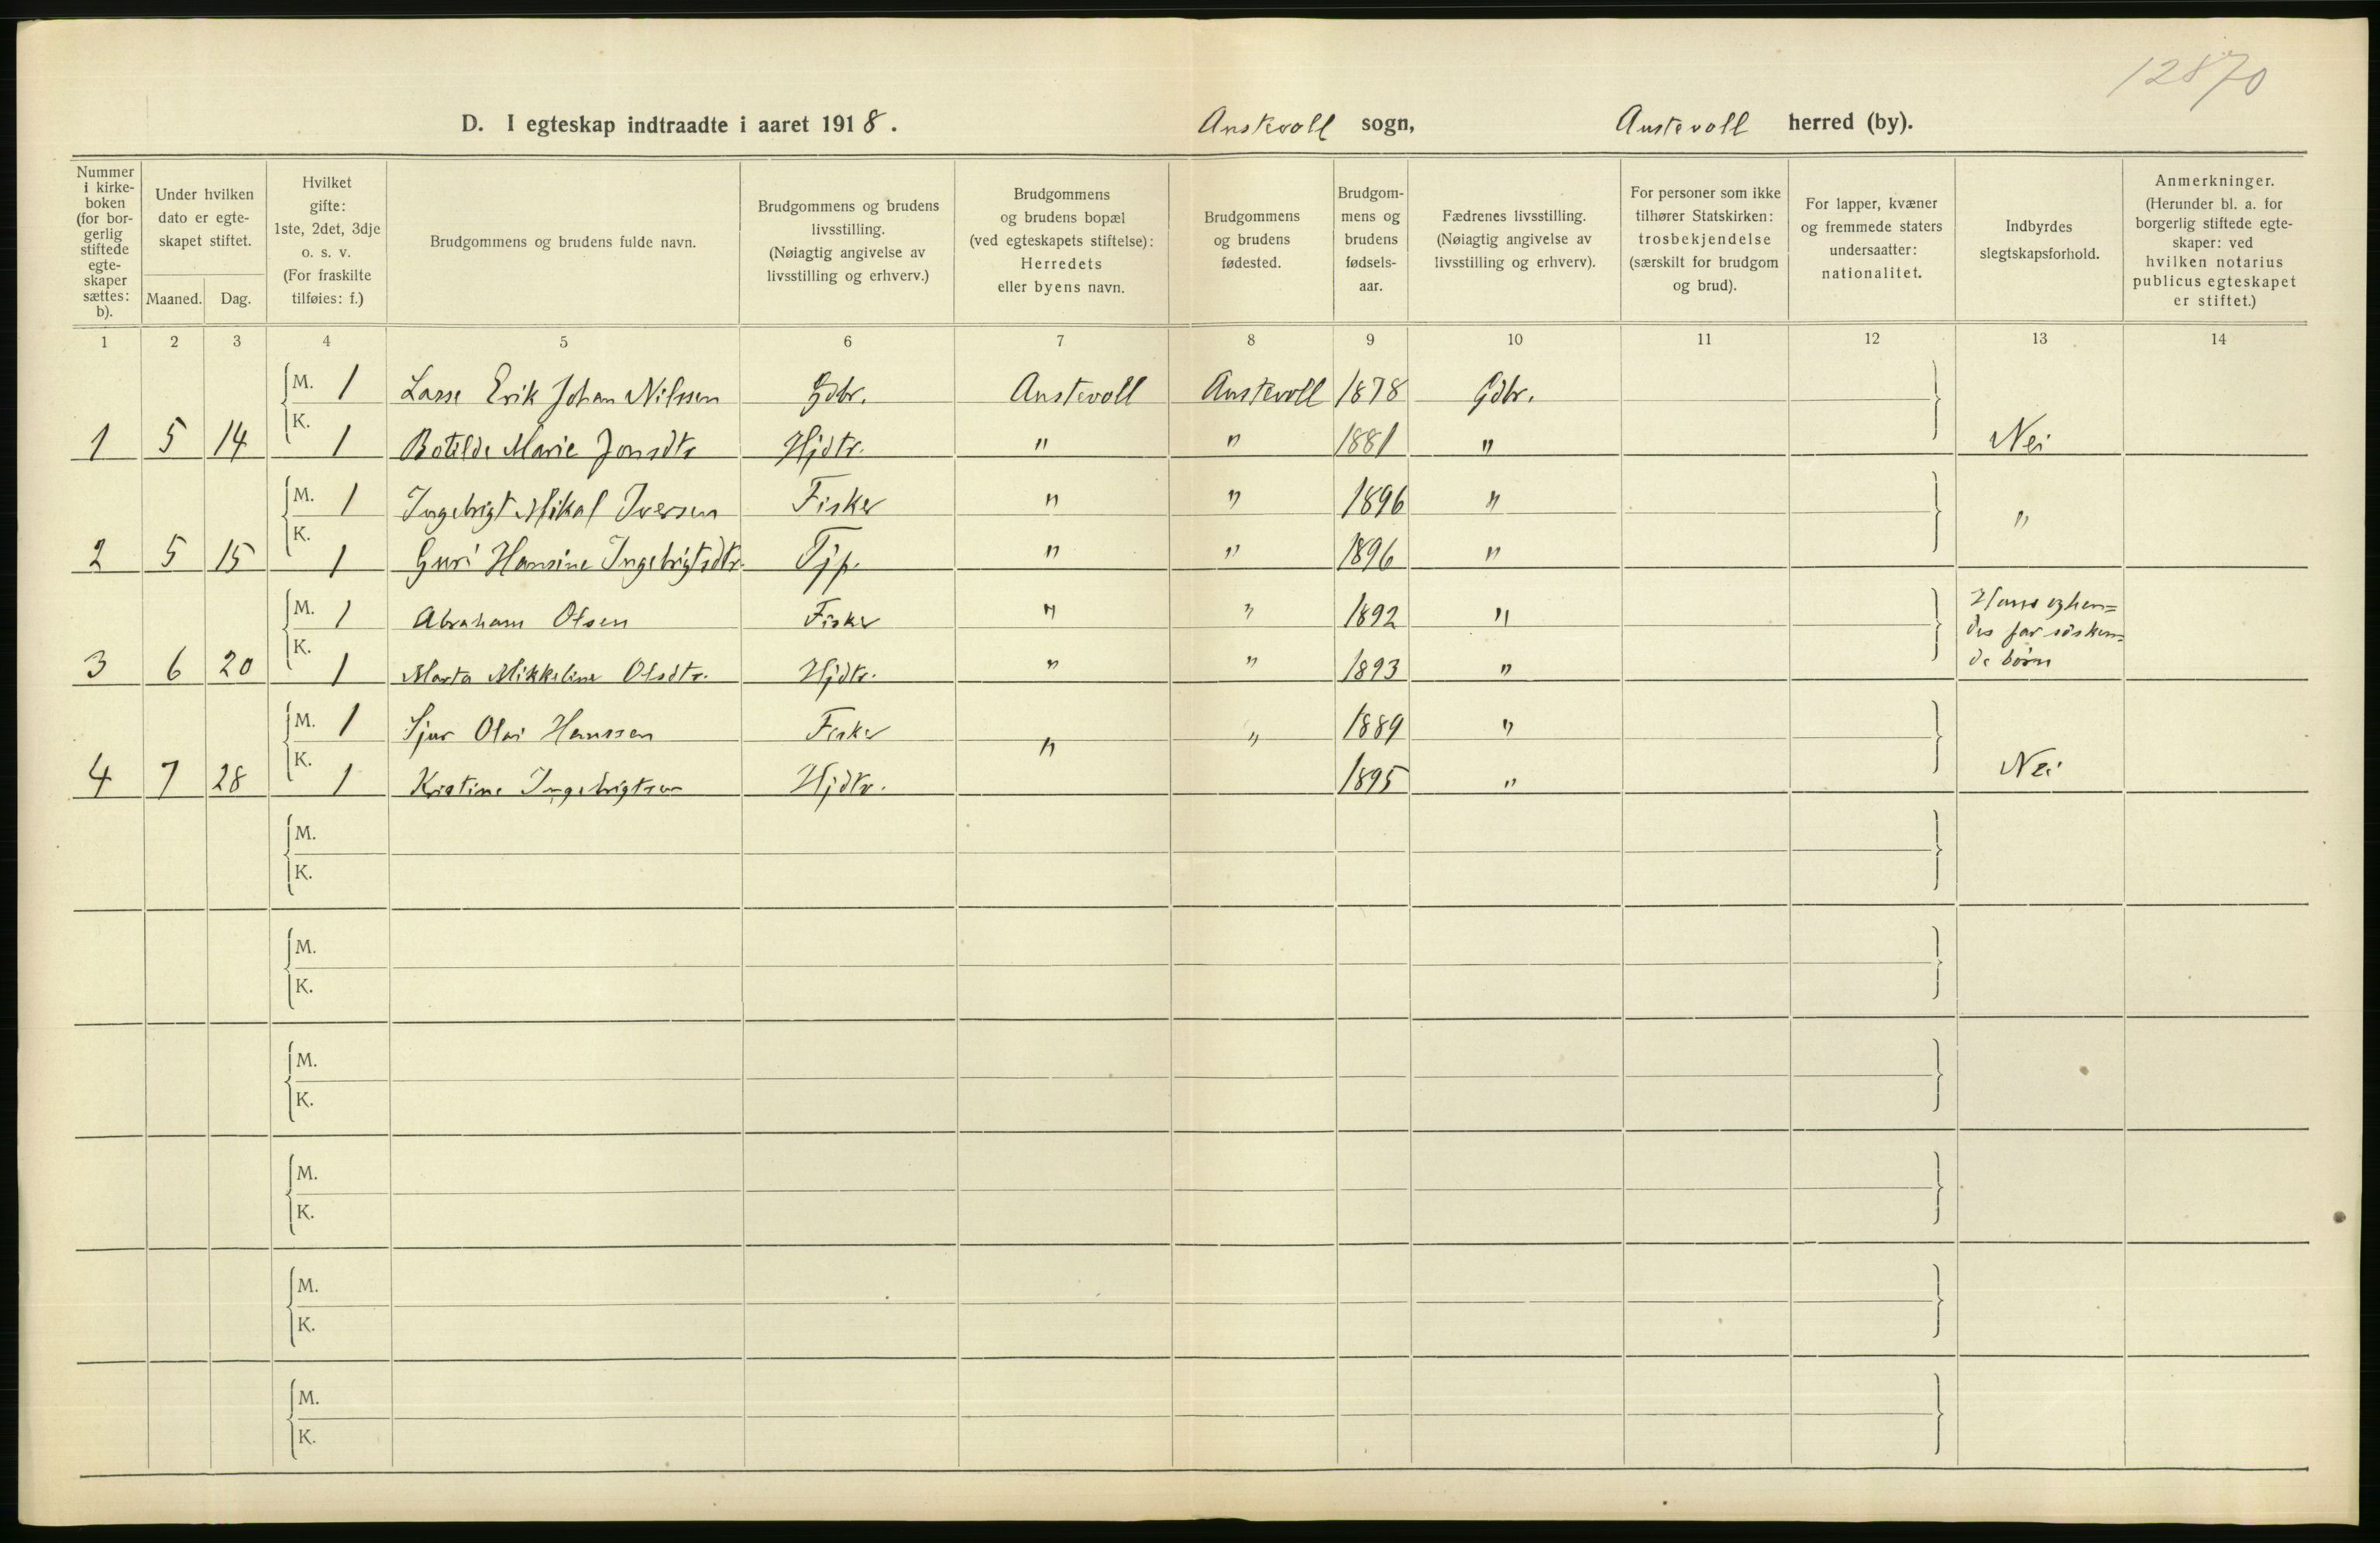 12870
D. I egteskap indtraadte i aaret 1918. Austevoll sogn, Austevoll herred (by).
Nummer i kirkeboken (for borgerlig stiftede egteskaper sættes: b).
Under hvilken dato er egteskapet stiftet.
Maaned. Dag.
Hvilket gifte: 1ste, 2det, 3dje o. s. v. (For fraskilte tilføies: f.)
Brudgommens og brudens fulde navn.
Brudgommens og brudens livsstilling. (Nøiagtig angivelse av livsstilling og erhverv.)
Brudgommens og brudens bopæl (ved egteskapets stiftelse): Herredets eller byens navn.
Brudgommens og brudens fødested.
Brudgommens og brudens fødselsaar.
Fædrenes livsstilling. (Nøiagtig angivelse av livsstilling og erhverv).
For personer som ikke tilhører Statskirken: trosbekjendelse (særskilt for brudgom og brud).
For lapper, kvæner og fremmede staters undersaatter: nationalitet.
Indbyrdes slegtskapsforhold.
Anmerkninger. (Herunder bl. a. for borgerlig stiftede egteskaper: ved hvilken notarius publicus egteskapet er stiftet.)
1 2 3 4 5 6 7 8 9 10 11 12 13 14
M. 1 Lasse Erik Johan Nilssen Gdbr. Austevoll Austevoll 1878 Gdbr.
1 5 14 K. 1 Botilde Marie Jonsdtr Hjdtr. " " 1881 " Nei
M. 1 Ingebrigt Mikal Iversen Fisker " " 1896 " "
2 5 15 K. 1 Guri Hansine Ingebrigtsdtr. Tjp. " " 1896 "
M. 1 Abraham Olsen Fisker " " 1892 " Hans og hen=
des far søsken=
3 6 20 K. 1 Marta Mikkeline Olsdtr. Hjdtr. " " 1893 " de børn
M. 1 Sjur Olai Hanssen Fisker " " 1889 "
4 7 28 K. 1 Kristine Ingebrigtsen Hjdtr. 1895 " Nei
M.
K.
M.
K.
M.
K.
M.
K.
M.
K.
M.
K.